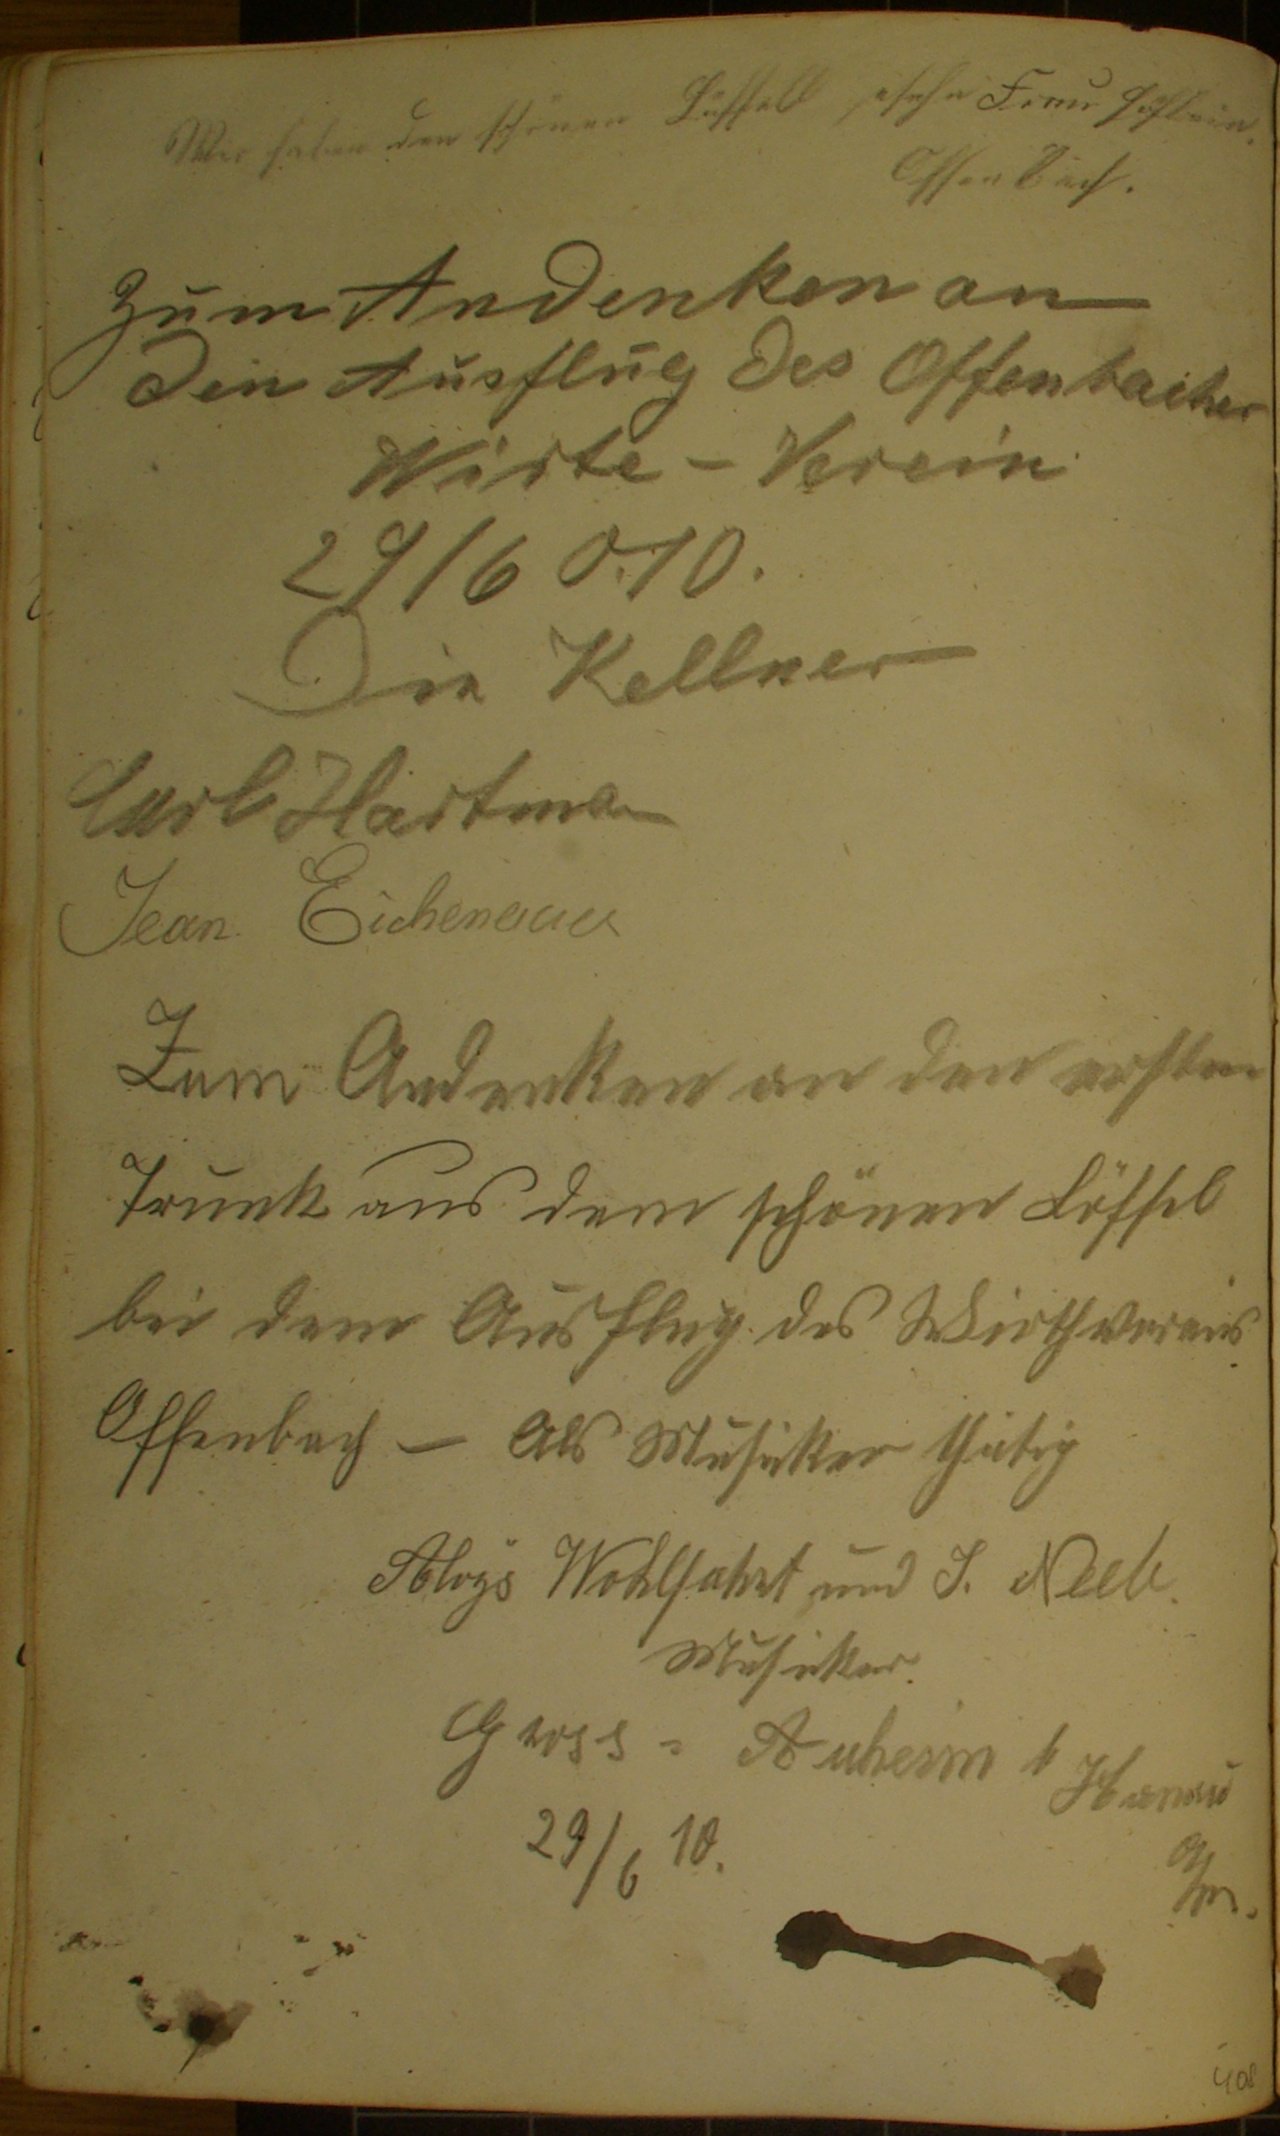 Wer haben den schönen Löffell, Frau
Offenbach.
Zum Andenken an
den Ausflug des Offenbacher
Wirte-Verein
29/6 0.10.
Die Kellner
Carl Hartman
Jean Eichenauer
Zum Andenken an den ersten
Trunk aus dem schönen Löffel
bei dem Ausflug des Wirthvereins
Offenbach – Als Musiker thätig
Aloys Wohlfahrt und J. Neeb.
Musiker.
Gross-Auheim b Hanau
a/m.
29/6 10.
408